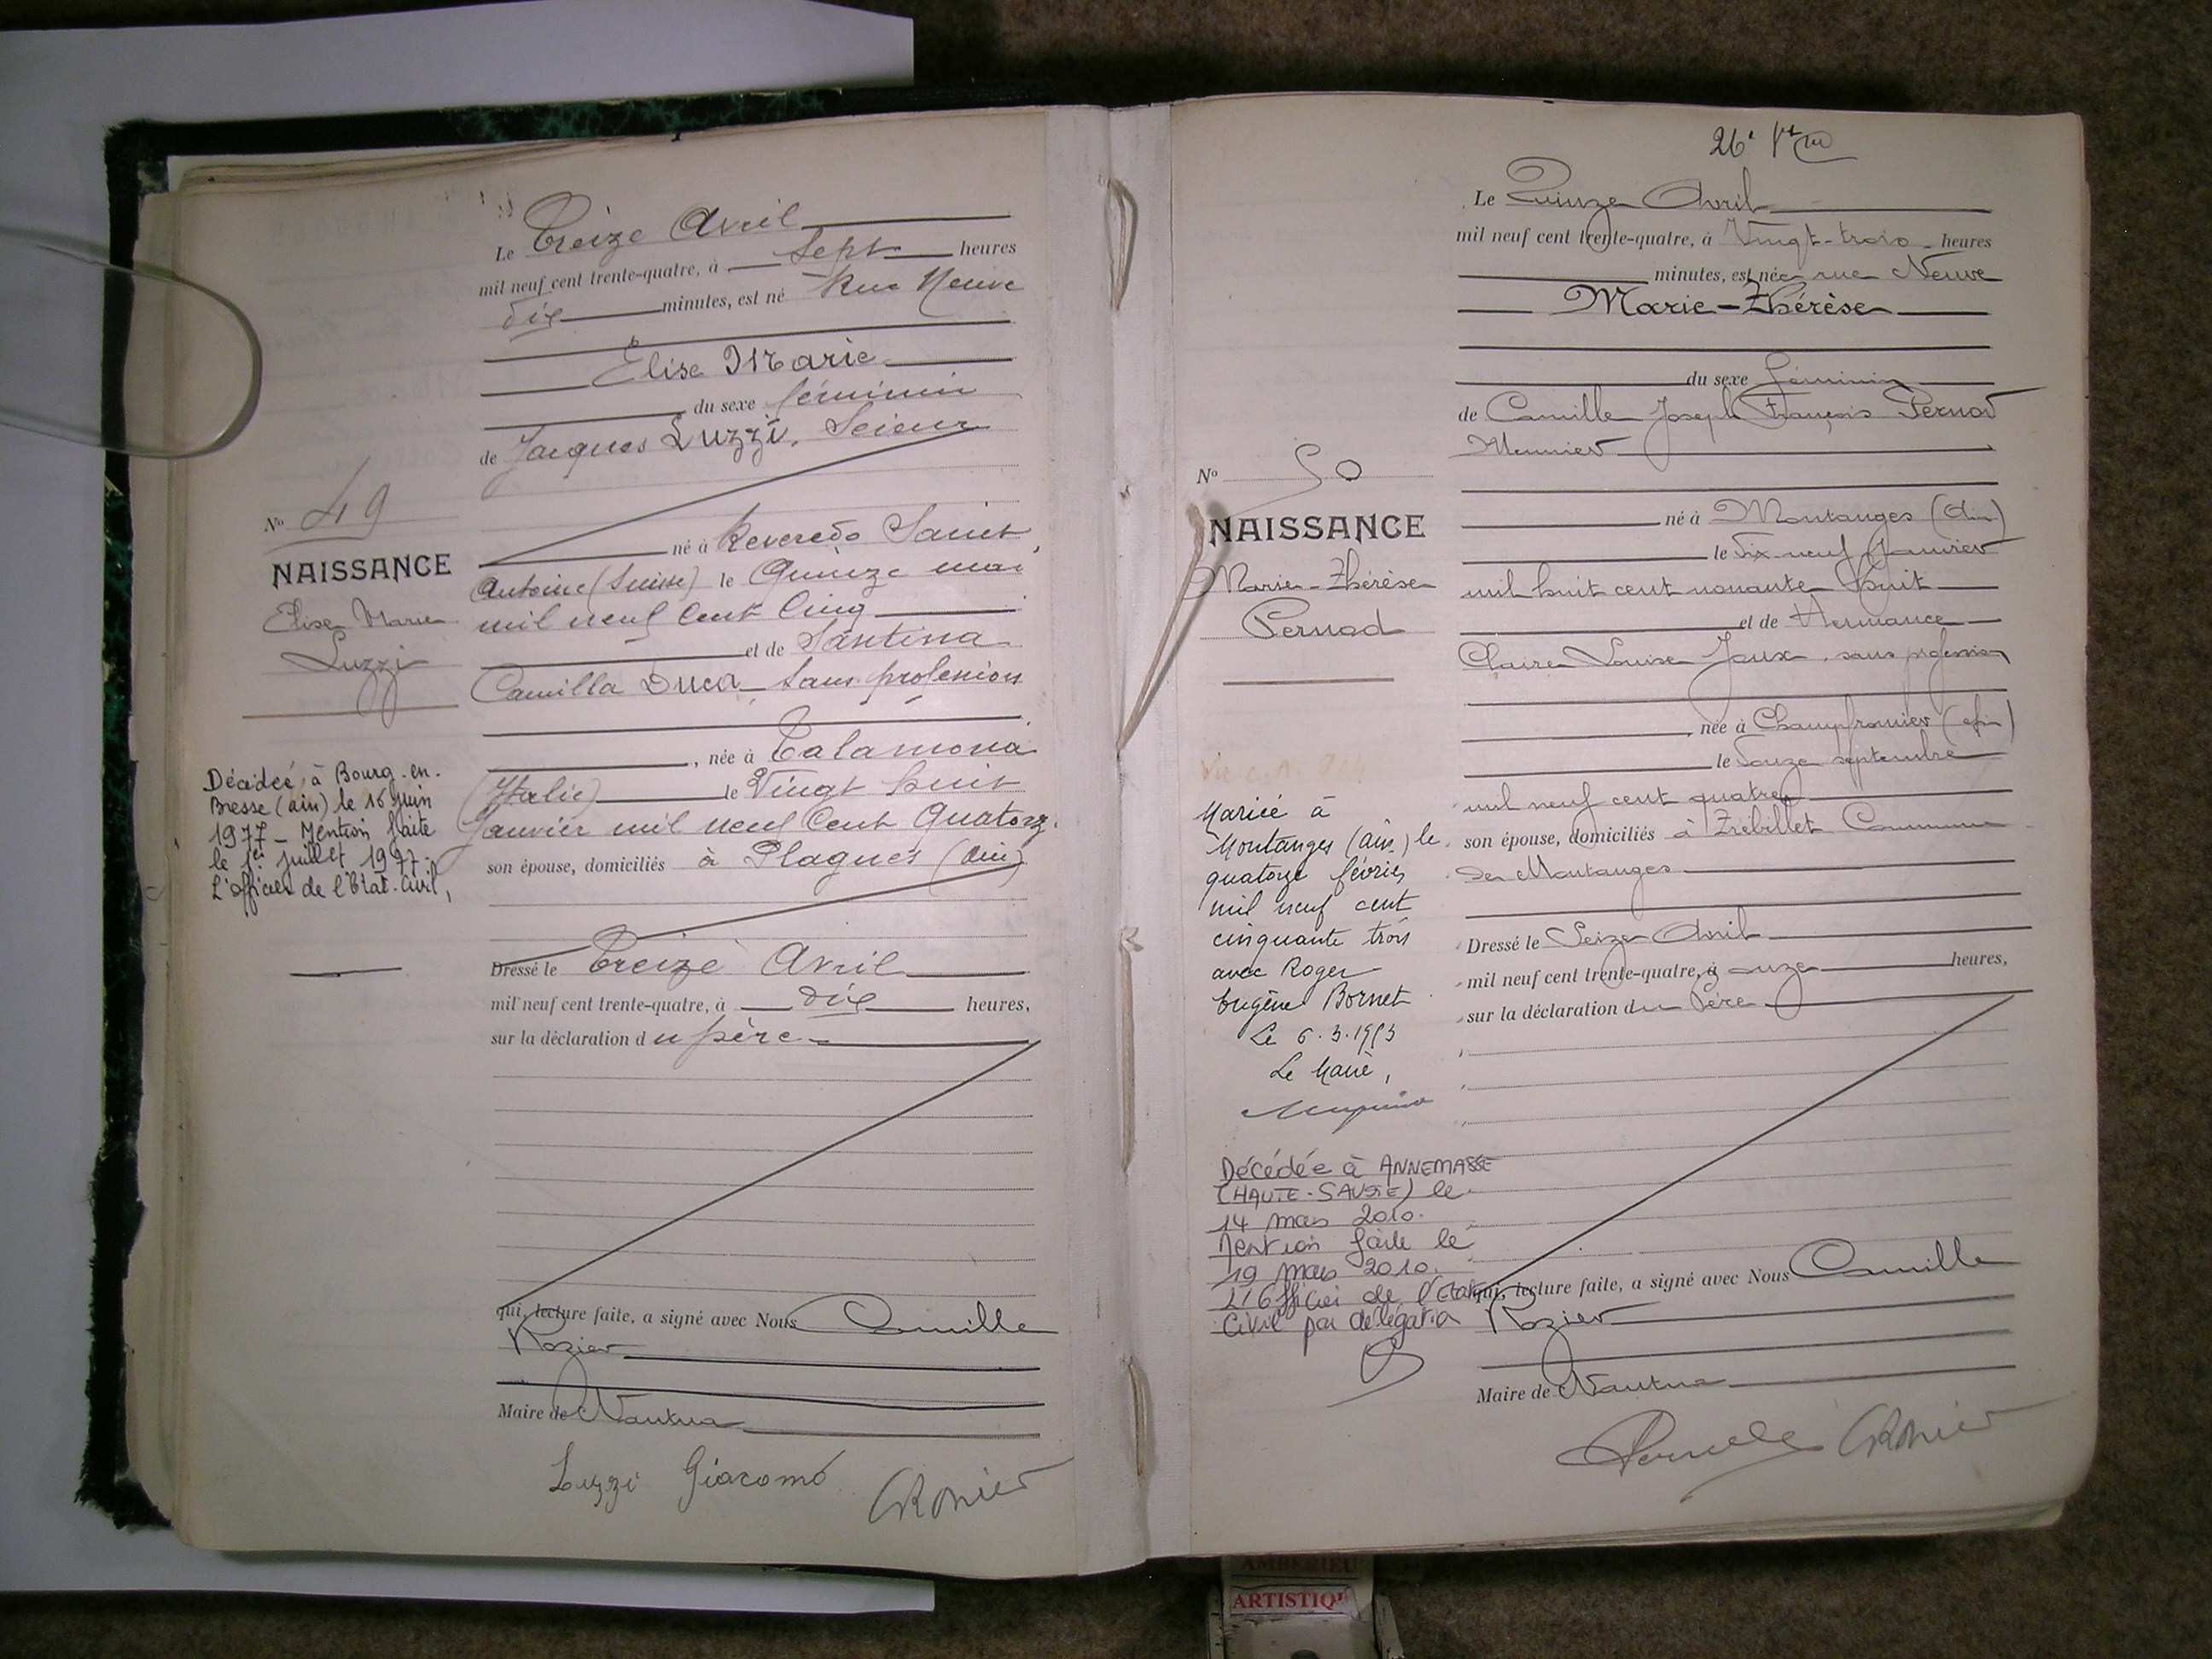 Le Treize Avril
mil neuf cent trente-quatre, à Sept heures
dix minutes, est né Rue Neuve
Élise Marie
du sexe féminin
de Jacques Luzzi, Scieur
né à Reveredo Saint
Antoine (Suisse) le Quinze mai
mil neuf cent cinq
et de Santina
Camilla Duca sans profession
, née à Talamona
(Italie) le Vingt huit
Janvier mil neuf cent Quatorz.
son épouse, domiciliés à Plagnes (Ain)
Dressé le Treize Avril
mil neuf cent trente-quatre, à dix heures,
sur la déclaration du père
qui, lecture faite, a signé avec Nous Camille
Rozier
Maire de Nantua
Luzzi Giacomo CRozier
No 49
NAISSANCE
Elise Marie
Luzzi
Décédée à Bourg-en-
Bresse (ain) le 16 juin
1977 - Mention faite
le 1er juillet 1977.
L'officier de l'Etat-Civil,
26e
Le Quinze Avril
mil neuf cent trente-quatre, à Vingt-trois heures
minutes, est née rue Neuve
Marie-Thérèse
du sexe féminin
de Camille Joseph François Pernod
Meunier
né à Montanges (Ain)
le dix-neuf Janvier
mil huit cent nonante huit
et de Hermance
Claire Louise Jaux, sans profession
, née à Champfromier (Ain)
le douze septembre
mil neuf cent quatre
son épouse, domiciliés à Trébillet Commune
de Montanges
Dressé le Seize Avril
mil neuf cent trente-quatre, à onze heures,
sur la déclaration du Père
qui, lecture faite, a signé avec Nous Camille
Rozier
Maire de Nantua
CRozier
No 50
NAISSANCE
Marie-Thérèse
Pernod
Mariée à
Montanges (ain) le
quatorze février
mil neuf cent
cinquante trois
avec Roger
Eugène Bornet
Le 6.3.1953
Le Maire,
Décédée à ANNEMASSE
(HAUTE-SAVOIE) le
14 mars 2010.
Mention faite le
19 mars 2010.
L'Officier de l'Etat
Civil par délégation
AMBERIEU
ARTISTIQU